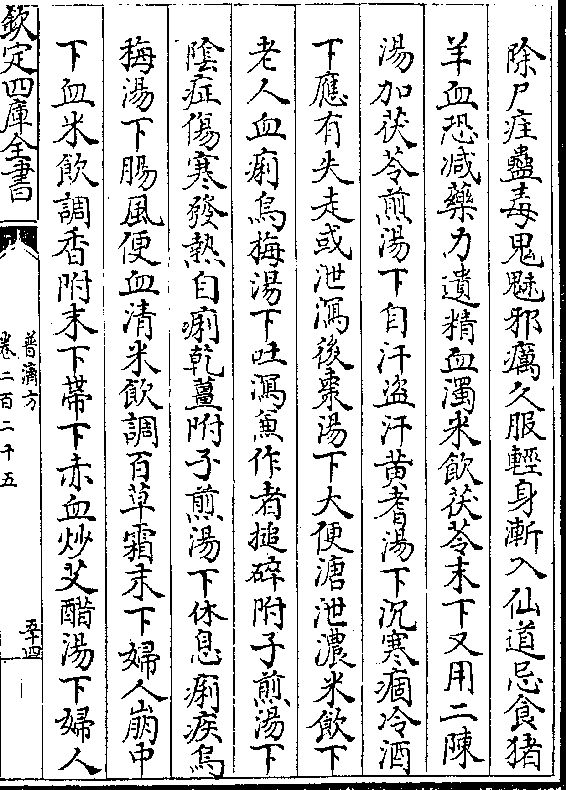 除尸疰蠱毒鬼魅邪癘久服輕身漸入仙道忌食猪
羊血恐减藥力遺精血濁米飲茯苓末下又用二陳
湯加茯苓煎湯下自汗盗汗黄耆湯下沉寒痼冷酒
下應有失走或泄瀉後棗湯下大便溏泄濃米飲下
老人血痢烏梅湯下吐瀉兼作者搥碎附子煎湯下
陰症傷寒發熱自痢乾薑附子煎湯下休息痢疾烏
梅湯下腸風便血清米飲調百草霜末下婦人崩中
下血米飲調香附末下帶下赤血炒艾醋湯下婦人
欽定四庫全書
普濟方
卷二百二十五
五十四